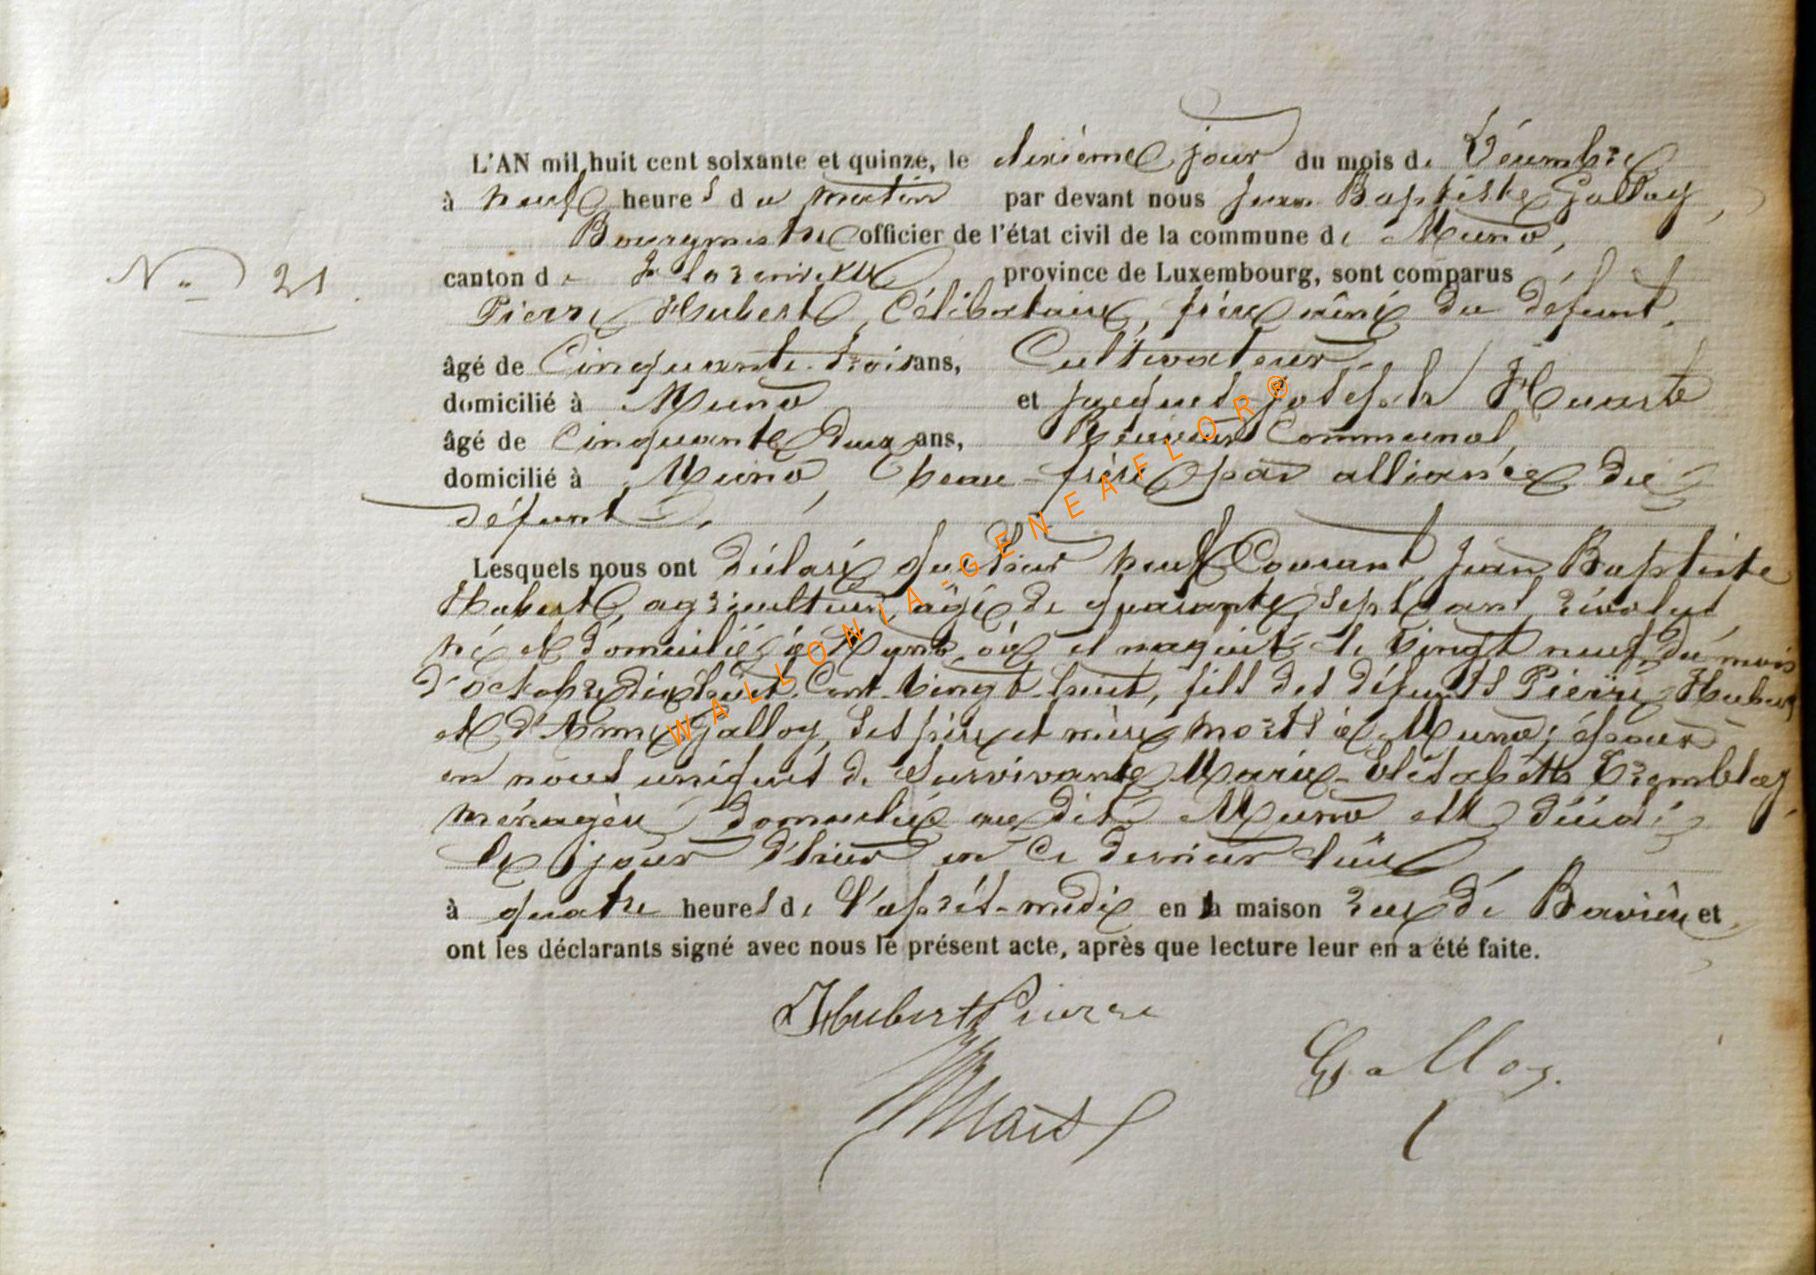 L'AN mil huit cent soixante et quinze, le dixième jour du mois de Décembre
à neuf heures du matin par devant nous Jean Baptiste Galloy,
Bourgmestre officier de l'état civil de la commune de Muno,
N° 21.
canton de Florenville province de Luxembourg, sont comparus
Pierre Hubert, Célibataire, frère aîné du défunt,
âgé de Cinquante-trois ans, Cultivateur
domicilié à Muno et Jacques Joseph
âgé de Cinquante Deux ans, Receveur Communal,
domicilié à Muno, beau-frère par alliance du
défunt.
Lesquels nous ont Déclaré que hier neuf Courant Jean Baptiste
Hubert, agriculteur, âgé de quarante sept ans révolus
né et domicilié à Muno, où il naquit le vingt neuf du mois
d'octobre dix huit Cent vingt huit, fils des défunts Pierre Hubert
et d'Anne Galloy, ses père et mère morts à Muno; époux
en noces uniques de survivante Marie-Elisabeth
ménagère domiciliée au dit Muno est décédé
le jour d'hier en ce dernier lieu
à quatre heures de l'après-midi en la maison rue de Bavière et
ont les déclarants signé avec nous le présent acte, après que lecture leur en a été faite.
Hubert Pierre
Galloy.
WALLONIA-GENEAFLOR®